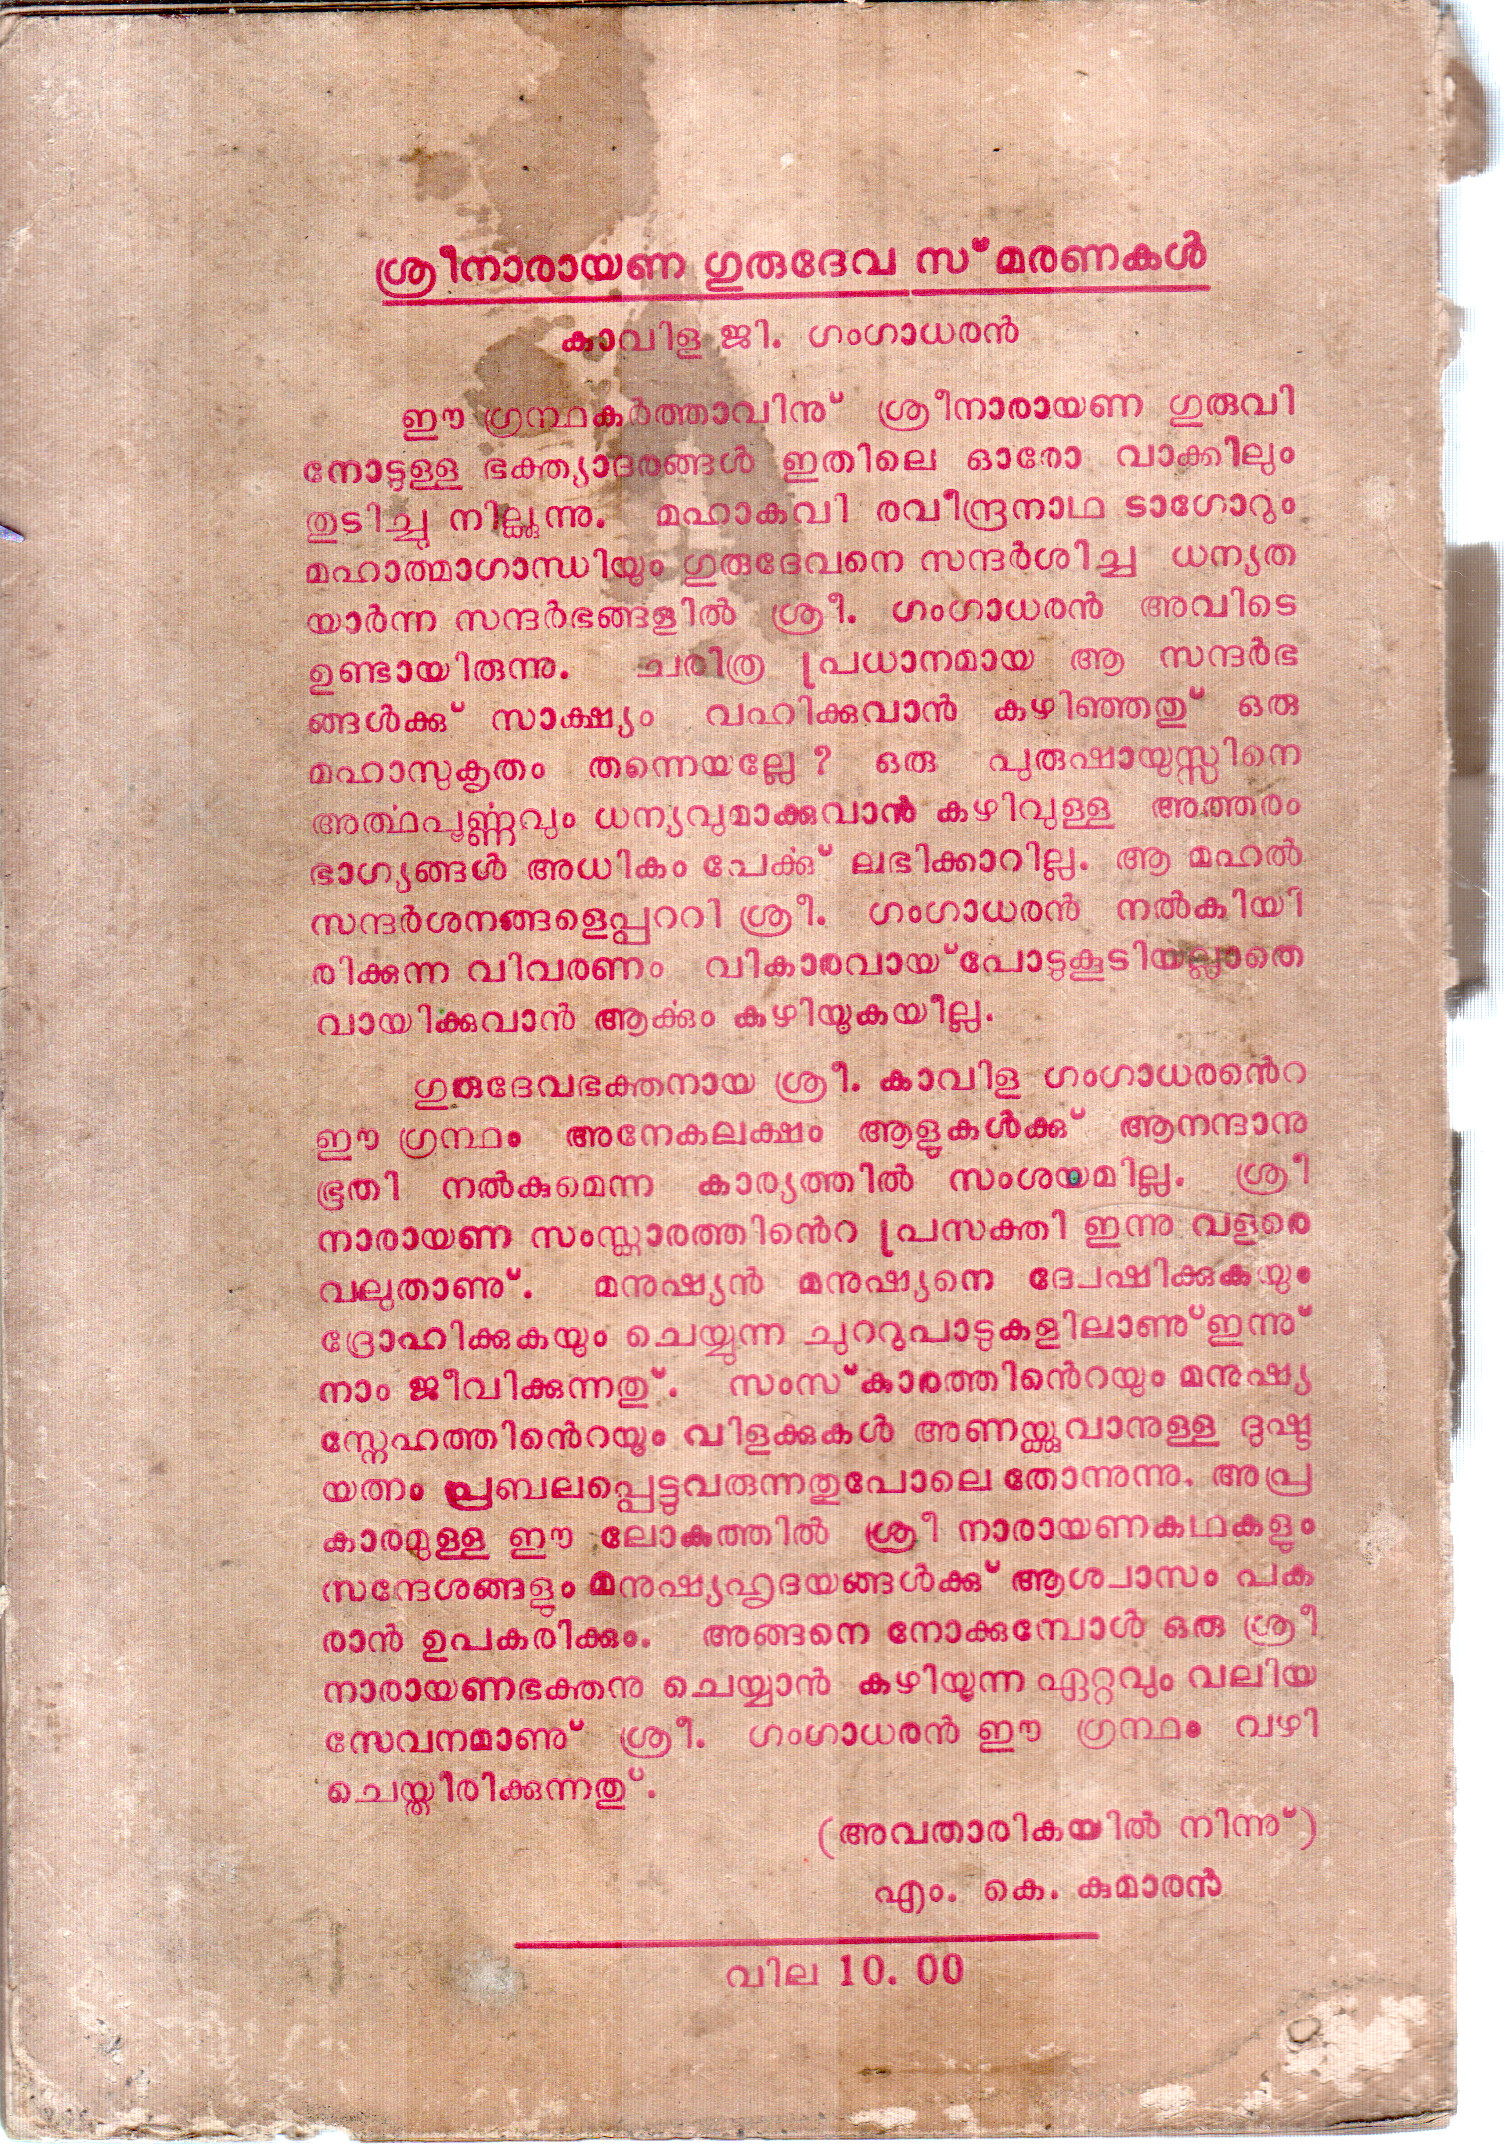 ശ്രീനാരായണ ഗുരുദേവ സ്മരണകൾ
കാവിള ജി. ഗംഗാധരൻ
ഈ ഗ്രന്ഥകർത്താവിനു് ശ്രീനാരായണ ഗുരുവി
നോടുള്ള ഭക്ത്യാദരങ്ങൾ ഇതിലെ ഓരോ വാക്കിലും
തുടിച്ചു നില്ക്കുന്നു. മഹാകവി രവീന്ദ്രനാഥ ടാഗോറും
മഹാത്മാഗാന്ധിയും ഗുരുദേവനെ സന്ദർശിച്ച ധന്യത
യാർന്ന സന്ദർഭങ്ങളിൽ ശ്രീ. ഗംഗാധരൻ അവിടെ
ഉണ്ടായിരുന്നു. ചരിത്ര പ്രധാനമായ ആ സന്ദർഭ
ങ്ങൾക്കു് സാക്ഷ്യം വഹിക്കുവാൻ കഴിഞ്ഞതു് ഒരു
മഹാസുകൃതം തന്നെയല്ലേ? ഒരു പുരുഷായുസ്സിനെ
അൎത്ഥപൂൎണ്ണവും ധന്യവുമാക്കുവാൻ കഴിവുള്ള അത്തരം
ഭാഗ്യങ്ങൾ അധികം പേൎക്കു് ലഭിക്കാറില്ല. ആ മഹൽ
സന്ദർശനങ്ങളെപ്പററി ശ്രീ. ഗംഗാധരൻ നൽകിയി
രിക്കുന്ന വിവരണം വികാരവായ്പോടുകൂടിയല്ലാതെ
വായിക്കുവാൻ ആൎക്കും കഴിയൂകയീല്ല.
ഗുരുദേവഭക്തനായ ശ്രീ. കാവിള ഗംഗാധരൻെറ
ഈ ഗ്രന്ഥം അനേകലക്ഷം ആളുകൾക്കു് ആനന്ദാനു
ഭൂതി നൽകുമെന്ന കാര്യത്തിൽ സംശയമില്ല. ശ്രീ
നാരായണ സംസ്ക്കാരത്തിൻെറ പ്രസക്തി ഇന്നു വളരെ
വലുതാണു്. മനുഷ്യൻ മനുഷ്യനെ ദ്വേഷിക്കുകയും
ദ്രോഹിക്കുകയും ചെയ്യുന്ന ചുററുപാടുകളിലാണു് ഇന്നു്
നാം ജീവിക്കുന്നതു്. സംസ്കാരത്തിൻെറയും മനുഷ്യ
സ്നേഹത്തിൻെറയൂം വിളക്കുകൾ അണയ്ക്കുവാനുള്ള ദുഷ്ട
യത്നം പ്രബലപ്പെട്ടുവരുന്നതുപോലെ തോന്നുന്നു. അപ്ര
കാരമുള്ള ഈ ലോകത്തിൽ ശ്രീ നാരായണകഥകളും
സന്ദേശങ്ങളും മനുഷ്യഹൃദയങ്ങൾക്കു് ആശ്വാസം പക
രാൻ ഉപകരിക്കും. അങ്ങനെ നോക്കുമ്പോൾ ഒരു ശ്രീ
നാരായണഭക്തനു ചെയ്യാൻ കഴിയൂന്ന ഏറ്റവും വലിയ
സേവനമാണു് ശ്രീ. ഗംഗാധരൻ ഈ ഗ്രന്ഥം വഴി
ചെയ്തിരിക്കുന്നതു്.
(അവതാരികയിൽ നിന്നു്)
എം. കെ. കുമാരൻ
വില 10. 00